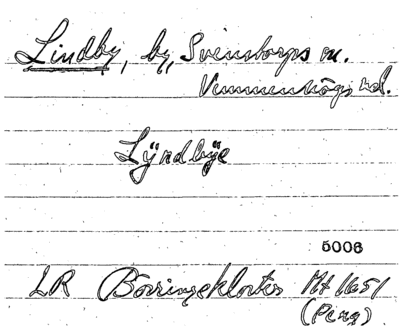 Lindby, by, Svenstorps sn.
Vemmenhögs hd.
Lÿndbÿe
5006
LR Börringekloster Mt 1651
(Peng)